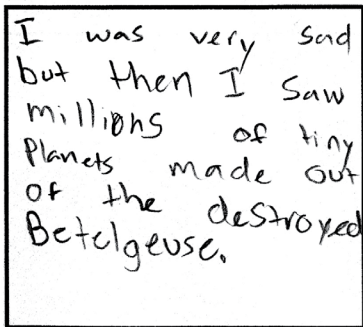 I was very sad
but then I saw
millions of tiny
Planets made out
of the destroyed
Betelgeuse.